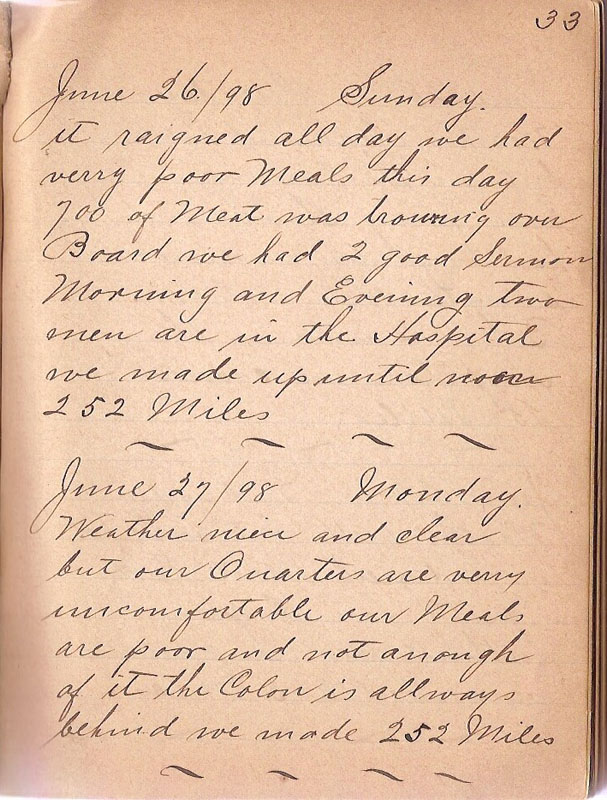 33
June 26/98 Sunday.
it raigned all day we had
verry poor Meals this day
700 of Meat was trowing over
Board we had 2 good Sermon
Morning and Evening two
men are in the Hospital
we made up until noon
252 Miles
June 27/98 Monday.
Weather nice and clear
but our Quarters are verry
uncomfortable our Meals
are poor and not anough
of it the Colon is allways
behind we made 252 Miles